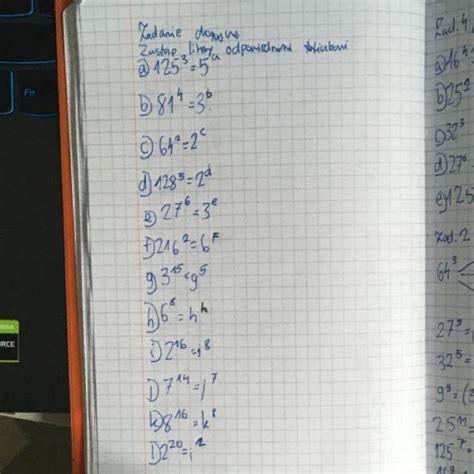 Zadanie domowe
Zastąp litery odpowiednimi liczbami
a) 125³ = 5ᵃ
b) 81⁴ = 3ᵇ
c) 64² = 2ᶜ
d) 128⁵ = 2ᵈ
e) 27⁶ = 3ᵉ
f) 216² = 6ᶠ
g) 3¹⁵ = g⁵
h) 6⁸ = hʰ
i) 2¹⁶ = i⁸
j) 7¹⁴ = j⁷
k) 8¹⁶ = k⁸
l) 2²⁰ = i²
Zad. 1
a) 16⁴
b) 25²
c) 32³
d) 27⁶
e) 125
Zad. 2
64³
27⁵ =
32⁵ =
9⁹ = (3
25¹¹ =
125⁷
Fn